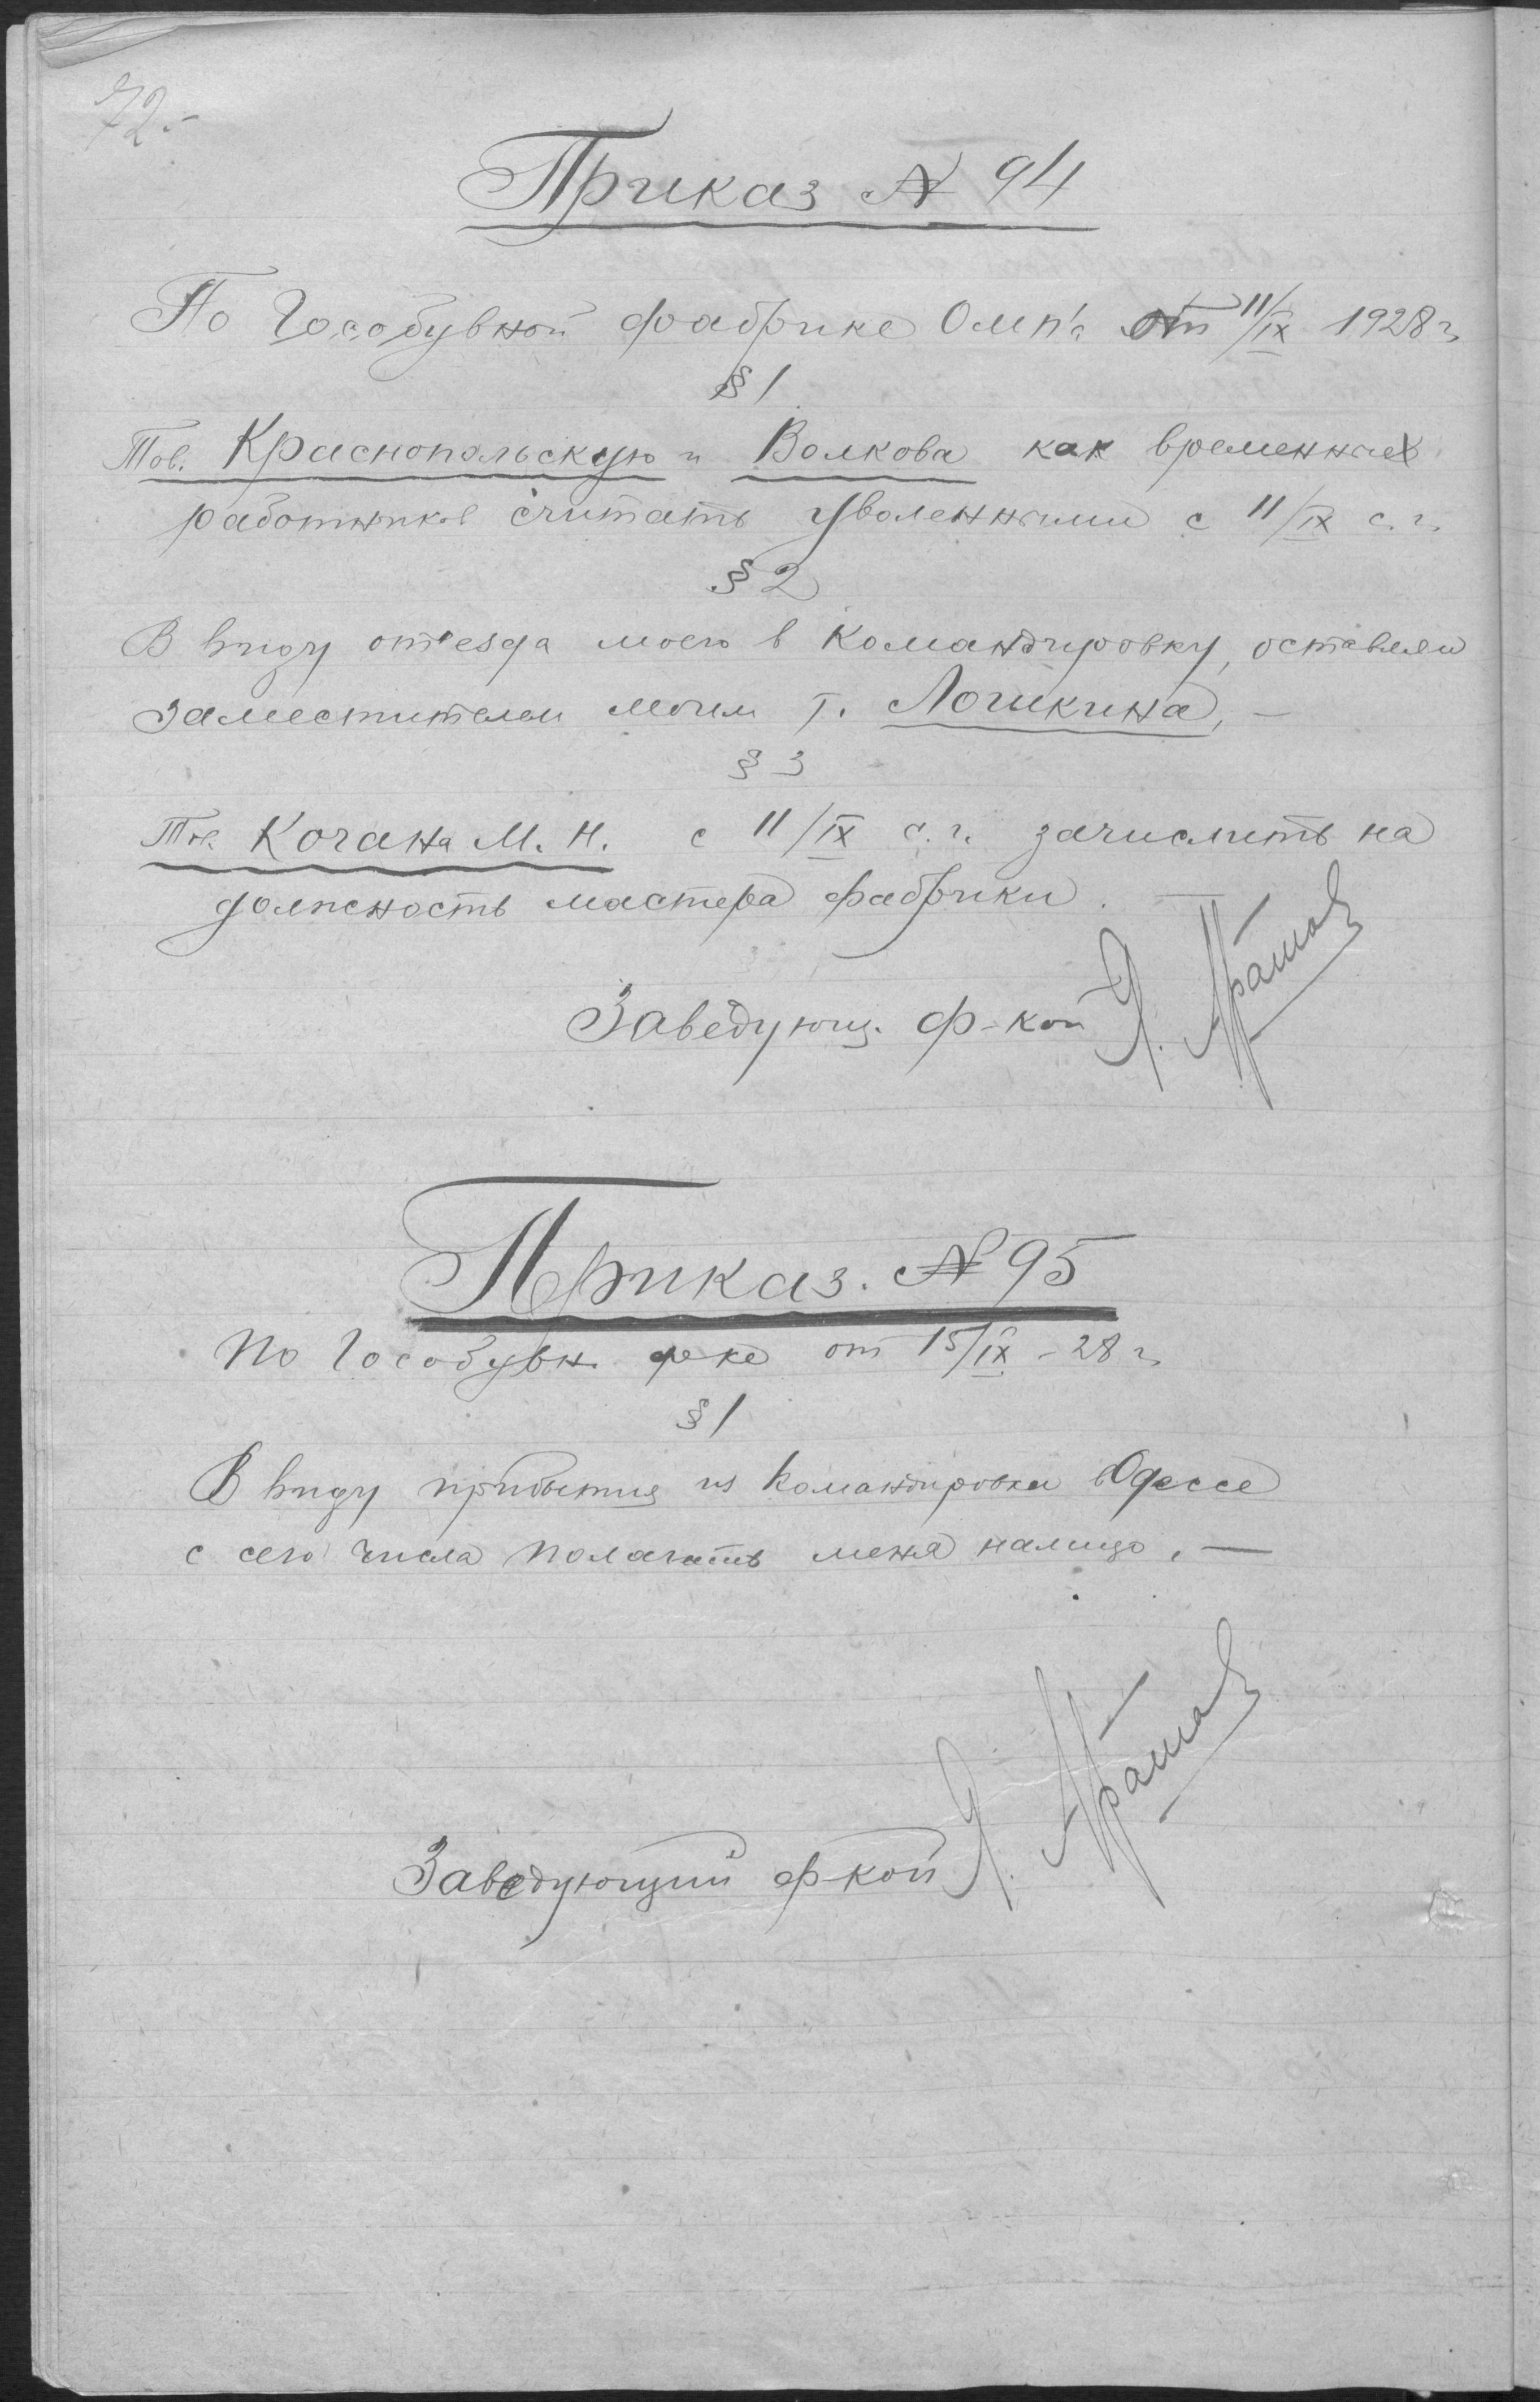 72.-
Приказ № 94
По Гособувной фабрике от 11/IX 1928 г.
§ 1
Тов. Краснопольскую и Волкова как временных
работников считать уволенными с 11/IX с. г.
§ 2
В виду от'езда моего в командировку, оставляю
заместителем моим т. Логикина, —
§ 3
Тов. Кочана М. Н. с 11/IX с. г. зачислить на
должность мастера фабрики.
Заведующ. ф-кой Я.
Приказ. № 95
По Гособувн. ф-ке от 15/IX - 28 г.
§ 1
В виду прибытия из командировки в Одессе
с сего числа полагать меня налицо. —
Заведующий ф-кой Я.